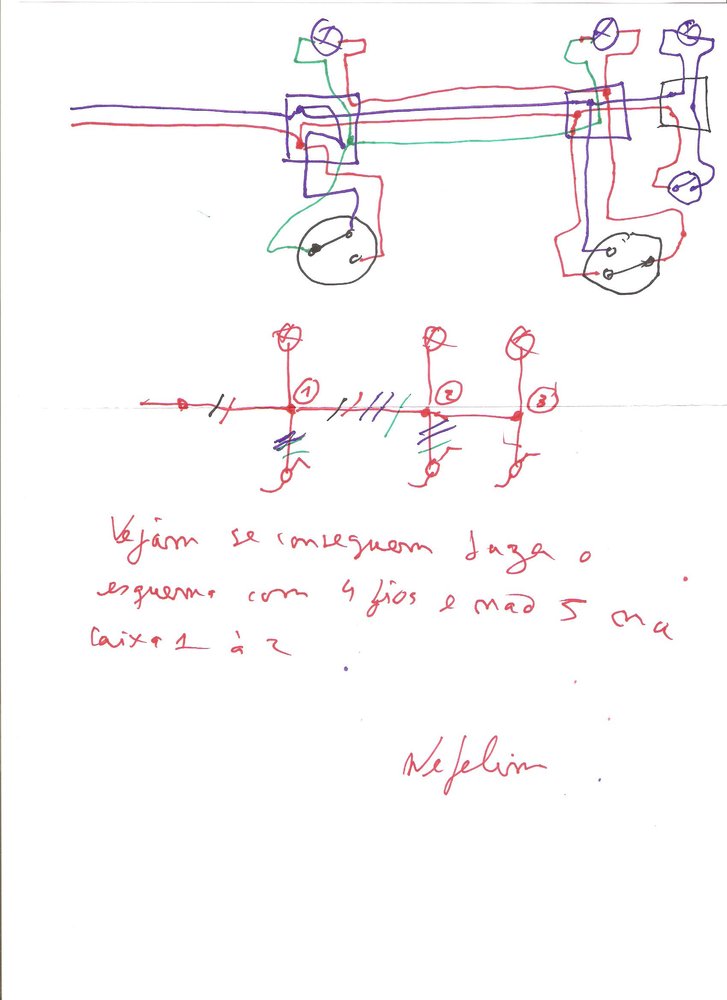 1
2
3
Vejam se conseguem fazer o
esquema com 4 fios e não 5 na
caixa 1 à 2
Nefelim